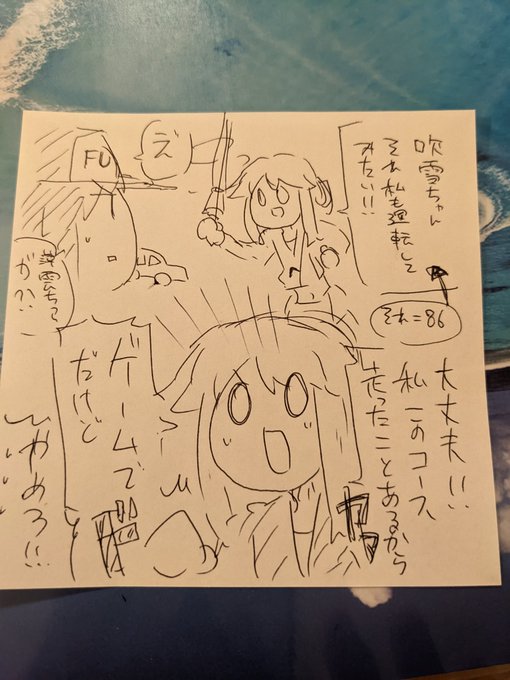 吹雪ちゃん
それ私も運転して
みたい!!
それ=86
え
FU
大丈夫!!
私このコース
走ったことあるから
ゲームで
だけど
やめろ!!